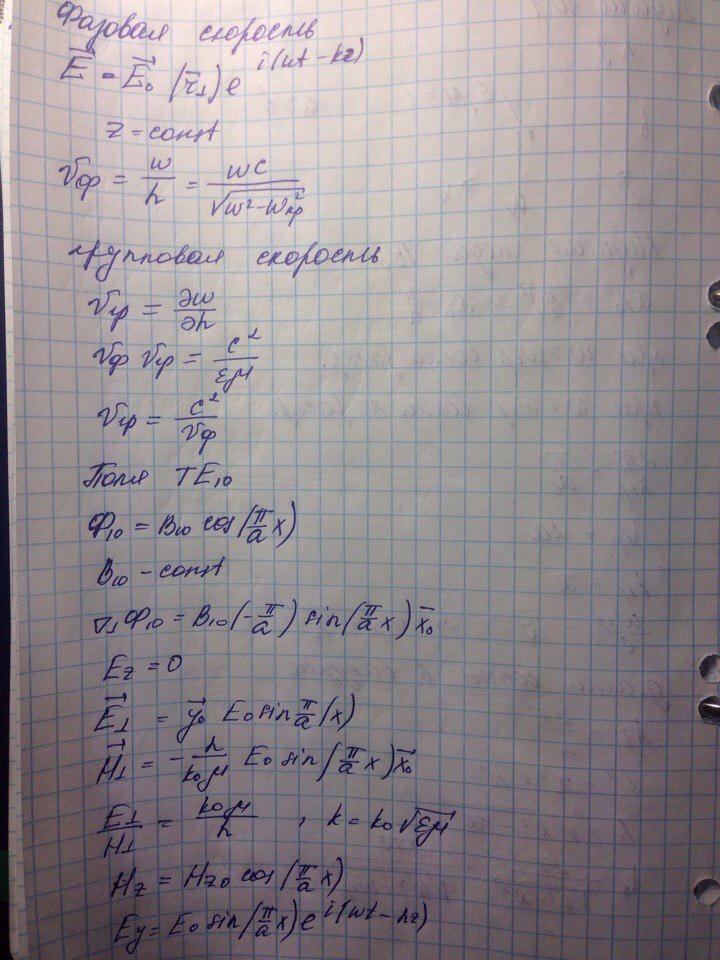 Фазовая скорость
E⃗ = E⃗₀ (r̄⊥) e^{i(wt - kz)}
z = const
Vф = w/h = wc/√(w² - wкр²)
групповая скорость
Vгр = ∂w/∂h
Vф Vгр = c²/εμ
Vгр = c²/Vф
Поля TE₁₀
Ф₁₀ = B₁₀ cos(π/a x)
B₁₀ - const
∇⊥Ф₁₀ = B₁₀(-π/a) sin(π/a x) x̄₀
Ez = 0
E⃗⊥ = y⃗₀ E₀ sin π/a (x)
H⃗⊥ = - h/k₀μ E₀ sin(π/a x) x̄₀
E⊥/H⊥ = k₀μ/h , k = k₀√εμ
Hz = Hz₀ cos(π/a x)
Ey = E₀ sin(π/a x) e^{i(wt - hz)}